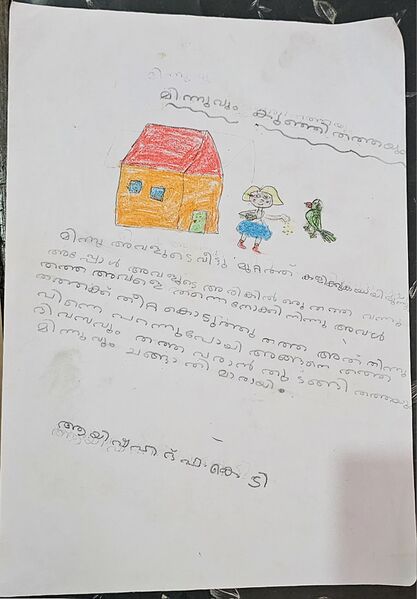 മിന്നുവും കുഞ്ഞിതത്തയും
മിന്നു അവളുടെ വീട്ടു മുറ്റത്ത് കളിക്കുകയായിരുന്നു
അപ്പോൾ അവളുടെ അരികിൽ ഒരു തത്ത വന്നു
തത്ത അവളെ തന്നെ നോക്കി നിന്നു അവൾ
തത്തക്ക് തീറ്റ കൊടുത്തു തത്ത അത് തിന്നു
പിന്നെ പറന്നുപോയി അങ്ങനെ തത്ത
ദിവസവും തത്ത വരാൻ തുടങ്ങി തത്തയും
മിന്നുവും ചങ്ങാതിമാരായി.